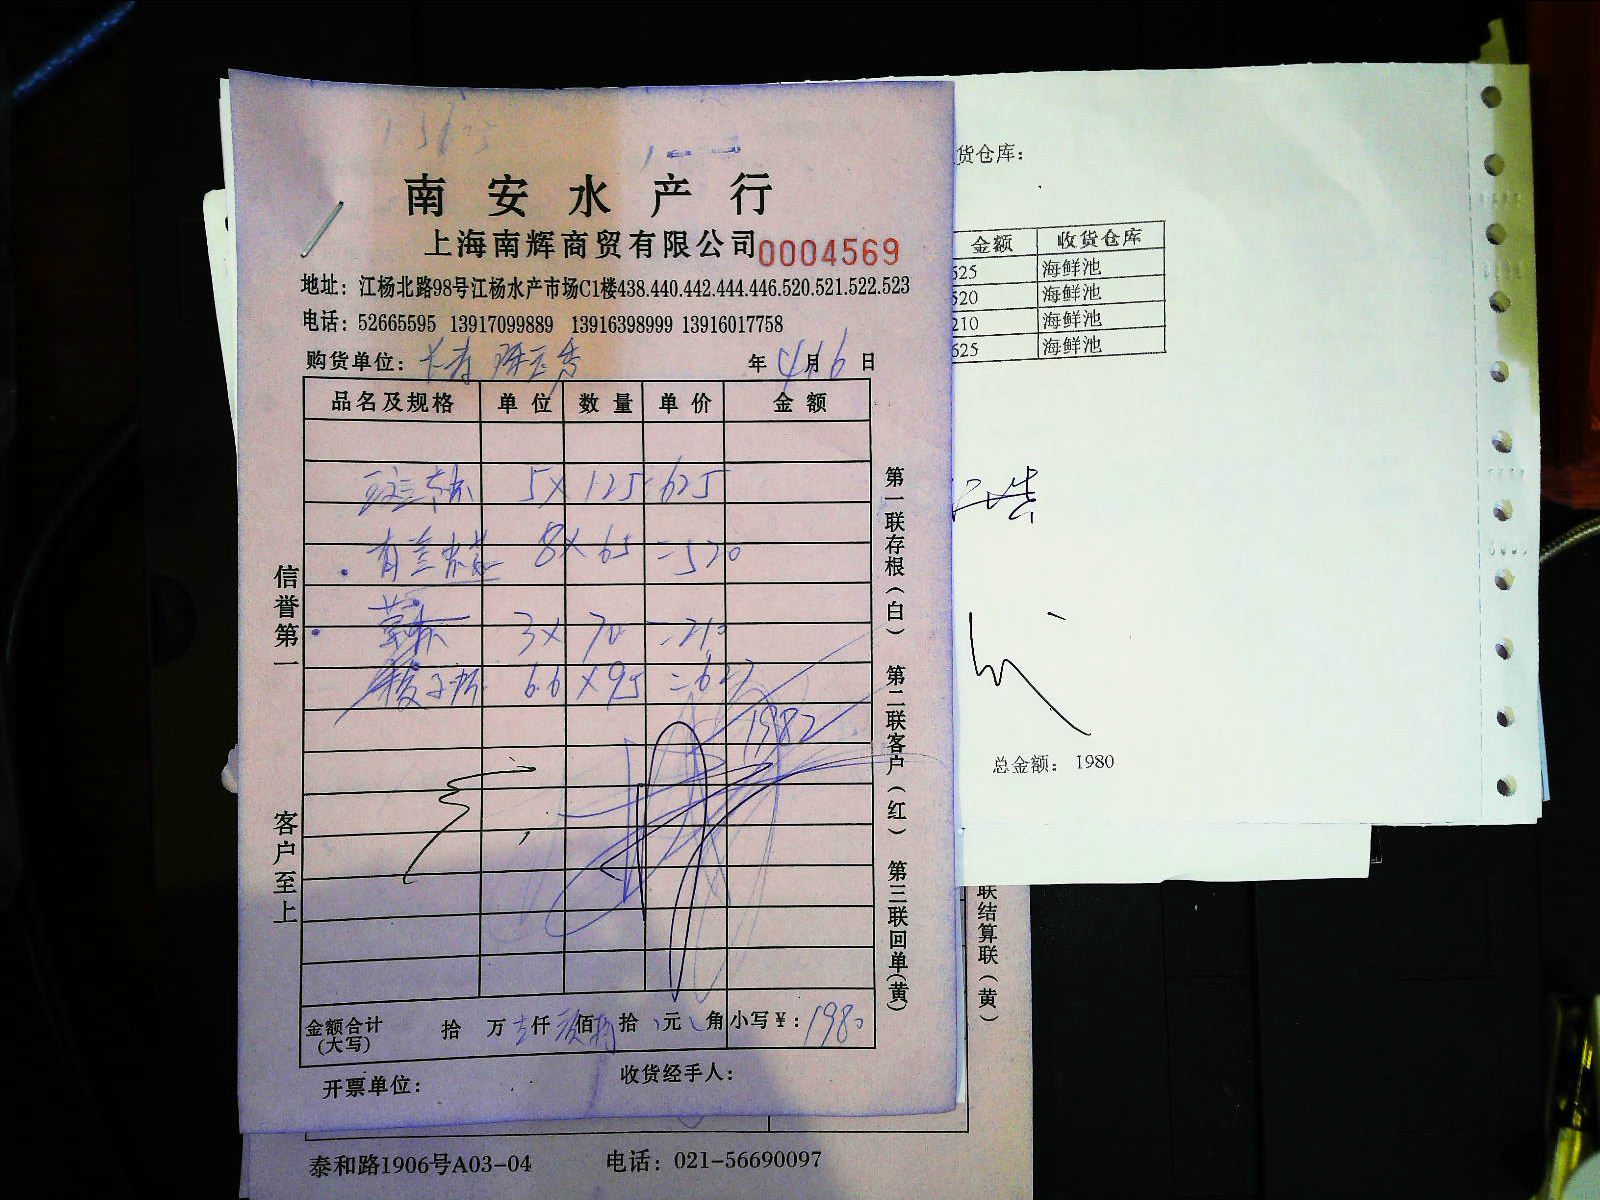 南安水产行
上海南辉商贸有限公司 0004569
地址：江杨北路98号江杨水产市场C1楼438.440.442.444.446.520.521.522.523
电话：52665595 13917099889 13916398999 13916017758
购货单位： 年 4月16日
品名及规格 单位 数量 单价 金额
5×125 625
8×65 =520
3×70 =210
6.6×95 =627
1982
金额合计(大写) 拾 万 仟 佰 拾 元 角 小写￥：1980
开票单位： 收货经手人：
信誉第一 客户至上
第一联存根（白） 第二联客户（红） 第三联回单(黄)
货仓库：
金额 收货仓库
625 海鲜池
520 海鲜池
210 海鲜池
625 海鲜池
总金额： 1980
联结算联（黄）
泰和路1906号A03-04 电话：021-56690097